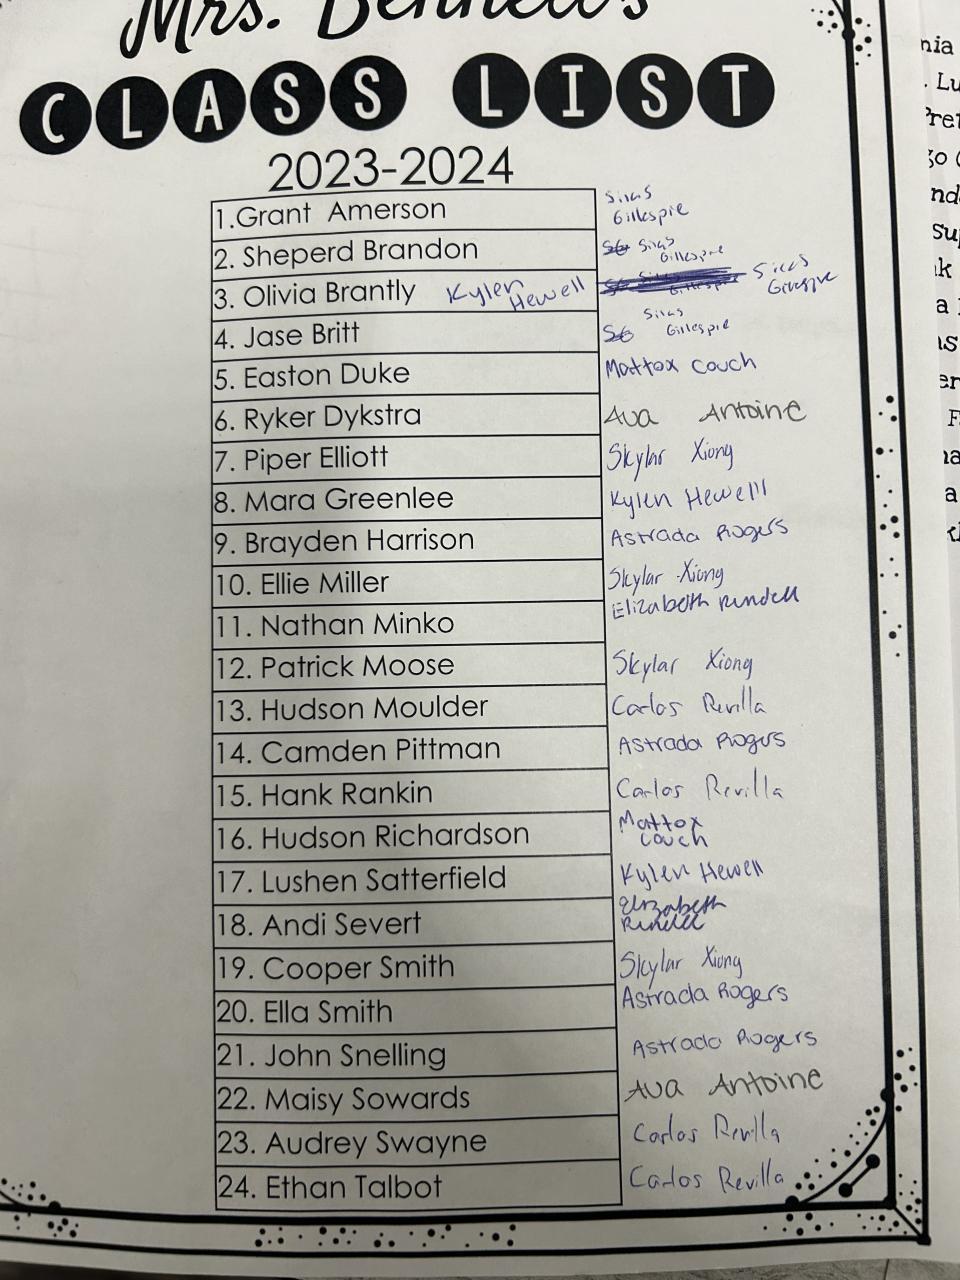 Mrs. Bennett's
CLASS LIST
2023-2024
1.Grant Amerson Silas Gillespie
2. Sheperd Brandon SG Silas Gillespie
3. Olivia Brantly Kylen Hewell SG Silas Gillespie Silas Gillespie
4. Jase Britt SG Silas Gillespie
5. Easton Duke Mattox Couch
6. Ryker Dykstra Ava Antoine
7. Piper Elliott Skylar Xiong
8. Mara Greenlee Kylen Hewell
9. Brayden Harrison Astrada Rogers
10. Ellie Miller Skylar Xiong
11. Nathan Minko Elizabeth Rundell
12. Patrick Moose Skylar Xiong
13. Hudson Moulder Carlos Revilla
14. Camden Pittman Astrada Rogers
15. Hank Rankin Carlos Revilla
16. Hudson Richardson Mattox Couch
17. Lushen Satterfield Kylen Hewell
18. Andi Severt Elizabeth Rundell
19. Cooper Smith Skylar Xiong
20. Ella Smith Astrada Rogers
21. John Snelling Astrada Rogers
22. Maisy Sowards Ava Antoine
23. Audrey Swayne Carlos Revilla
24. Ethan Talbot Carlos Revilla